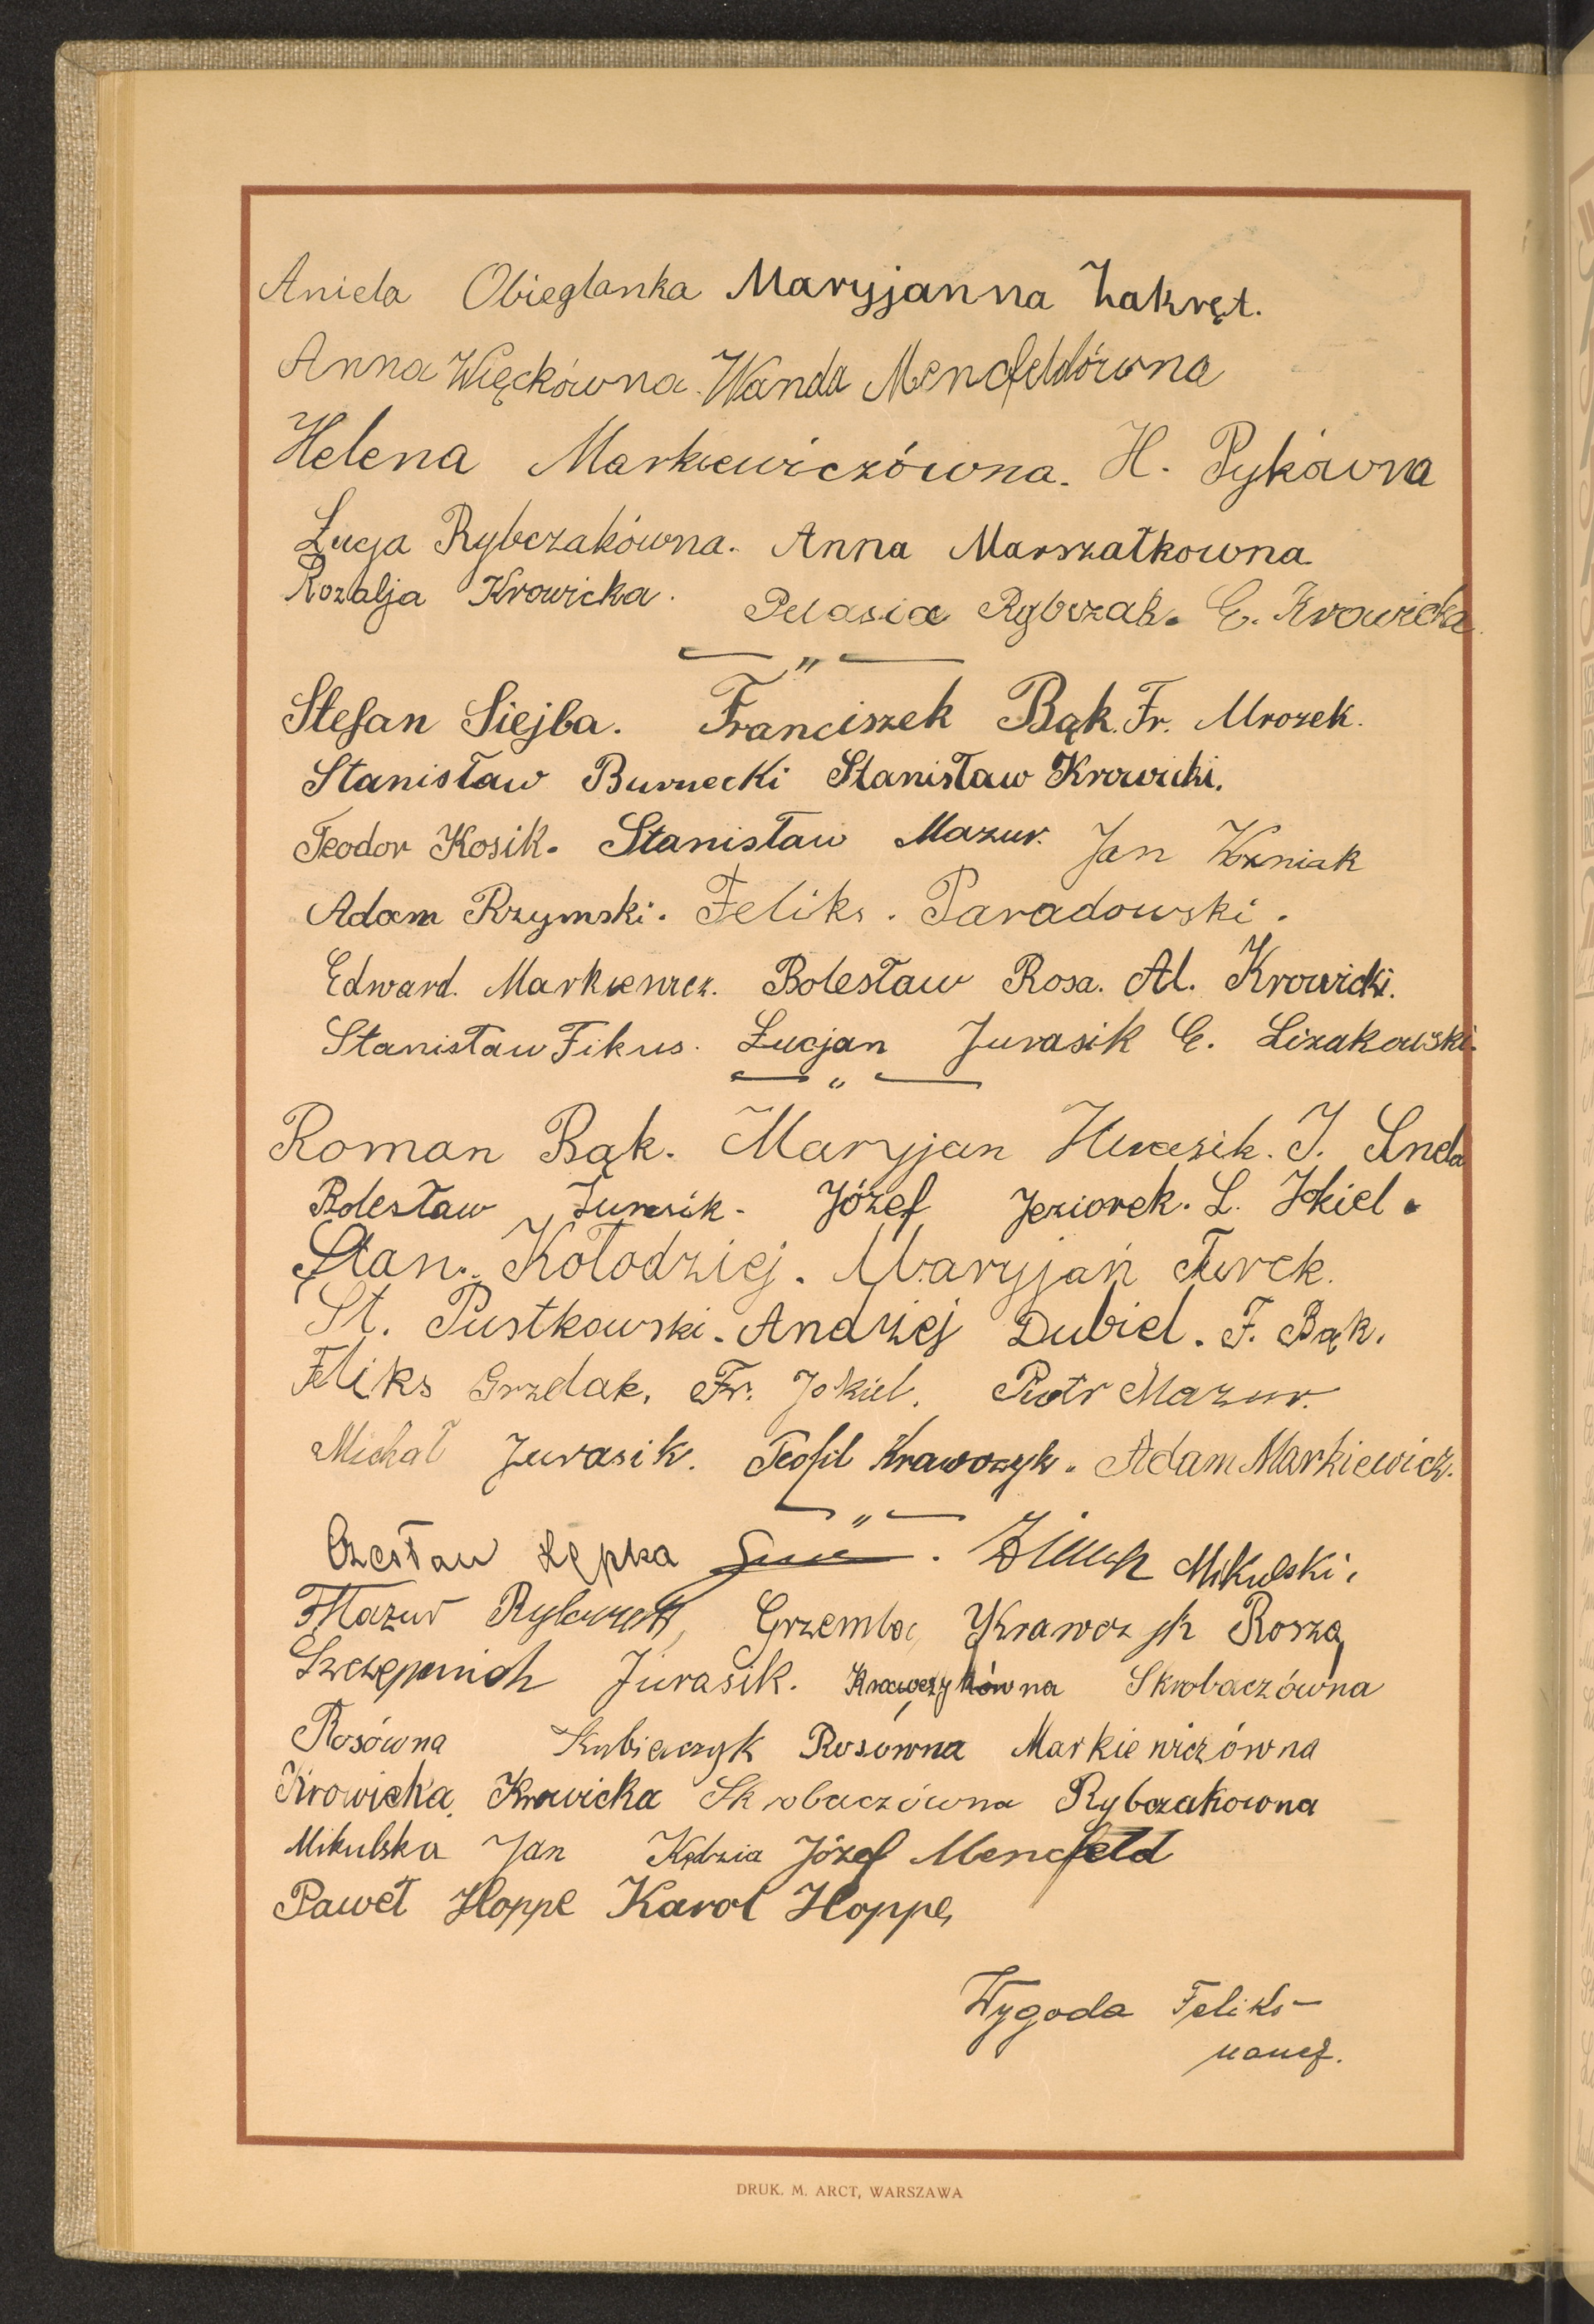 Aniela Obieglanka Maryjanna Zakręt.
Anna Więckówna. Wanda Mencfeldówna
Helena Markiewiczówna. H. Pykówna
Łucja Rybczakówna. Anna Marszałkowna
Rozalja Krowicka. Pelasia Rybczak. G. Krowicka
„
Stefan Siejba. Franciszek Bąk. Fr. Mrozek.
Stanisław Burnecki Stanisław Krowicki.
Teodor Kosik. Stanisław Mazur. Jan Woźniak
Adam Rzymski. Feliks. Paradowski.
Edward. Markiewicz. Bolesław Rosa. Al. Krowicki.
Stanisław Fikus. Łucjan Jurasik G. Lizakowski.
„
Roman Bąk. Maryjan. J.
Bolesław Jurasik. Józef Jeziorek. L. Jokiel.
Stan. Kołodziej. Maryjań Turek.
St. Pustkowski. Andrzej Dubiel. F. Bąk.
Feliks Grzelak. Fr. Jokiel. Piotr Mazur.
Michał Jurasik. Teofil Krawczyk. Adam Markiewicz.
„
Czesław Łępka. Mikulski.
Mazur Rybczak, Grzemba, Krawczyk Rosza,
Szczepanich Jurasik. Krawczykówna Skrobaczówna
Rosówna Kubiaczyk Rosówna Markiewiczówna
Krowicka, Krowicka Skrobaczówna Rybczakowna
Mikulska Jan Kędzia Józef Mencfeld
Paweł Hoppe Karol Hoppe,
Wygoda Feliks-
naucz.
DRUK. M. ARCT, WARSZAWA